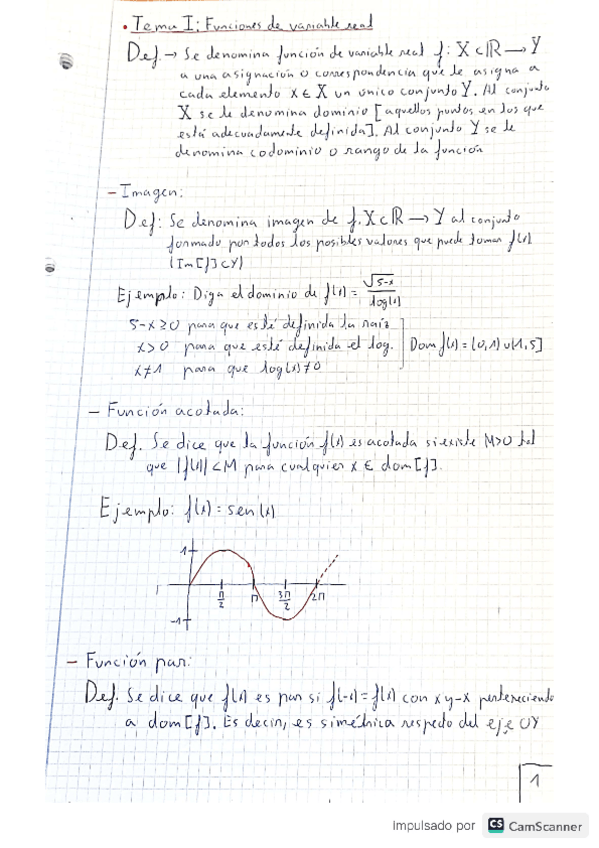 • Tema I: Funciones de variable real
Def. → Se denomina función de variable real f: X ⊂ ℝ → Y
a una asignación o correspondencia que le asigna a
cada elemento x ∈ X un único conjunto Y. Al conjunto
X se le denomina dominio [aquellos puntos en los que
está adecuadamente definida]. Al conjunto Y se le
denomina codominio o rango de la función
- Imagen:
Def: Se denomina imagen de f: X ⊂ ℝ → Y al conjunto
formado por todos los posibles valores que puede tomar f(x)
(Im[f] ⊂ Y)
Ejemplo: Diga el dominio de f(x) = √(5-x) / log(x)
5-x ≥ 0 para que esté definida la raíz
x > 0 para que esté definida el log. Dom f(x) = (0,1) ∪ (1,5]
x ≠ 1 para que log(x) ≠ 0
- Función acotada:
Def. Se dice que la función f(x) es acotada si existe M>0 tal
que |f(x)| < M para cualquier x ∈ dom[f].
Ejemplo: f(x) = sen(x)
1
π/2 π 3π/2 2π
-1
- Función par:
Def. Se dice que f(x) es par si f(-x) = f(x) con x y -x perteneciendo
a dom[f]. Es decir, es simétrica respecto del eje OY
1
Impulsado por CS CamScanner